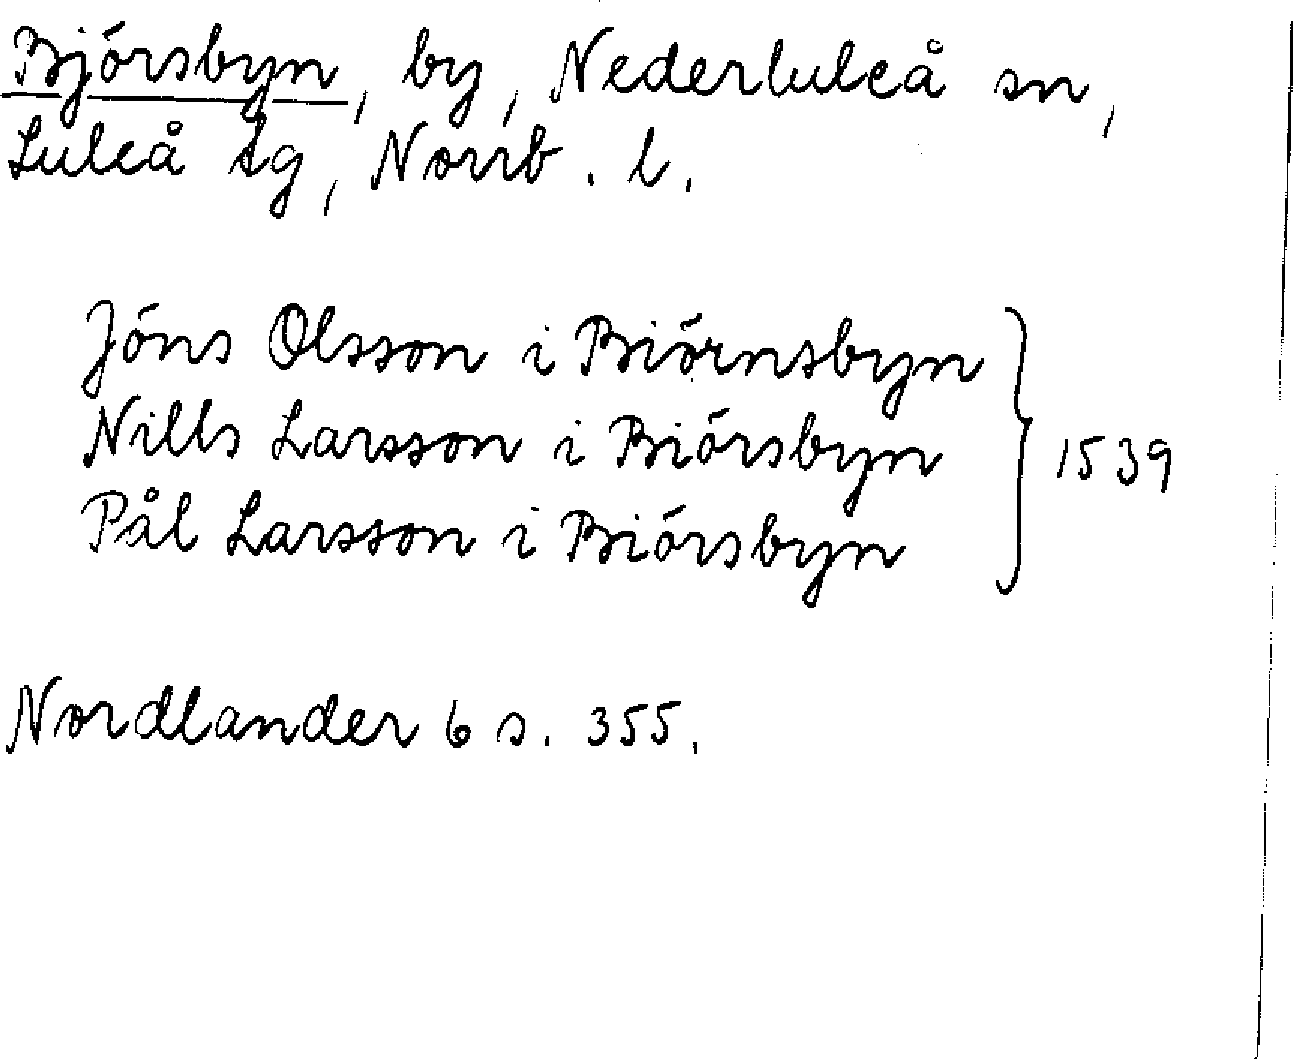 Bjórsbyn, by, Nederluleå sn,
Luleå tg, Norrb. l.
Jóns Olsson i Biórnsbyn
Nills Larsson i Biórsbyn } 1539
Pål Larsson i Biórsbyn
Nordlander 6 s. 355.